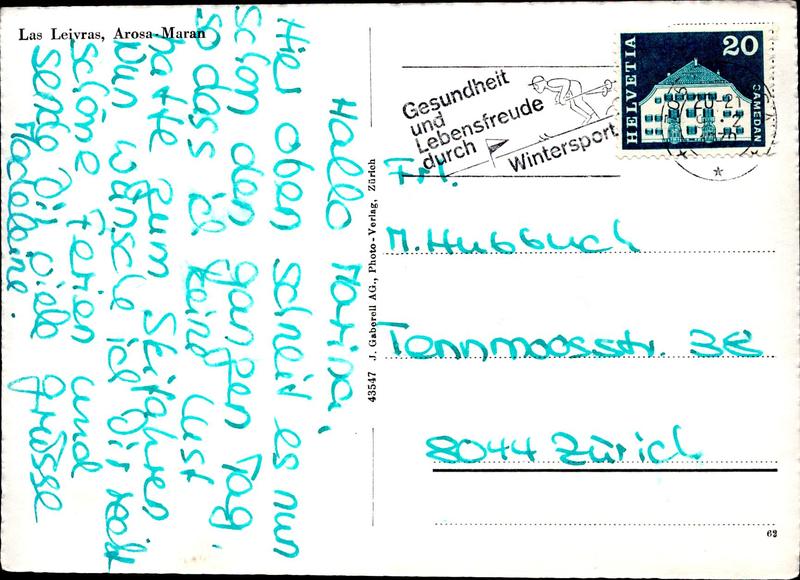 Las Leivras, Arosa-Maran
Hallo Marina,
Hier oben schneit es nun
schon den ganzen Tag,
so dass ich keine Lust
hatte zum Skifahren.
Nun wünsche ich Dir recht
schöne Ferien und
sende Dir viele Grüsse
Madeleine.
43547 J. Gaberell AG., Photo-Verlag, Zürich
Gesundheit
und
Lebensfreude
durch
Wintersport
HELVETIA
20
SAMEDAN
Frl.
M. Hubbuch
Tennmoosstr. 38
8044 Zürich
62